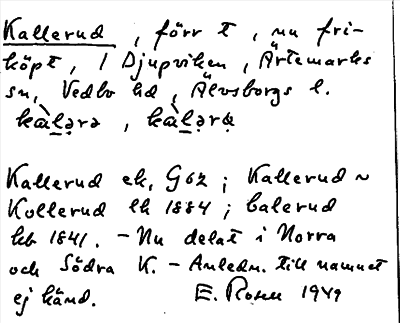 Kallerud, förr t, nu fri-
köpt, i Djupviken, Ärtemarks
sn, Vedbo hd, Älvsborgs l.
kàḷərə, kàḷərə
Kallerud ek, G 62; Kallerud ~
Kollerud lk 1884; balerud
kb 1841. - Nu delat i Norra
och Södra K. - Anledn. till namnet
ej känd. E. Rosell 1949